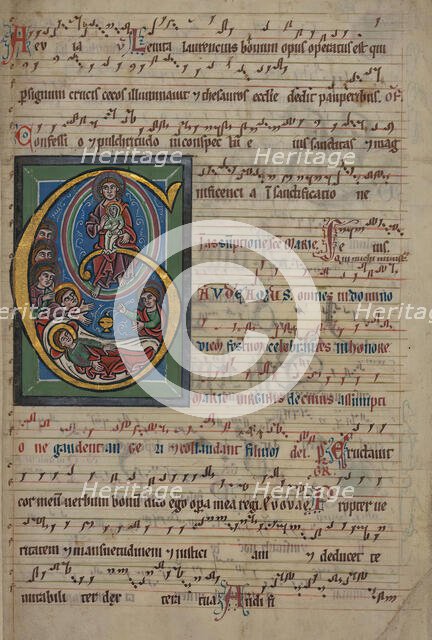 Aev ia v Levita laurencius bonum opus operatus est qui
per signum crucis cecos illuminavit et thesauros ecclie dedit pauperibus. OF
Confessi o et pulchritudo in conspec tu e ius sanctitas et mag
nificenci a in sanctificatio ne
In assumptione sce Marie. ius.
GAUDEAMUS omnes in domino
diem festum celebrantes in honore
Marie virginis de cuius assumpti
o ne gaudent an ge li et collaudant filium dei. Ps Eructavit
GR.
cor meum verbum bonum dico ego opera mea regi. Euouae. Propter ve
ritatem et mansuetudinem et iustici am et deducet te
mirabili ter dex tera tua Audi fi
Heritage
Heritage
Heritage
Heritage
Heritage
Heritage
Heritage
Heritage
©